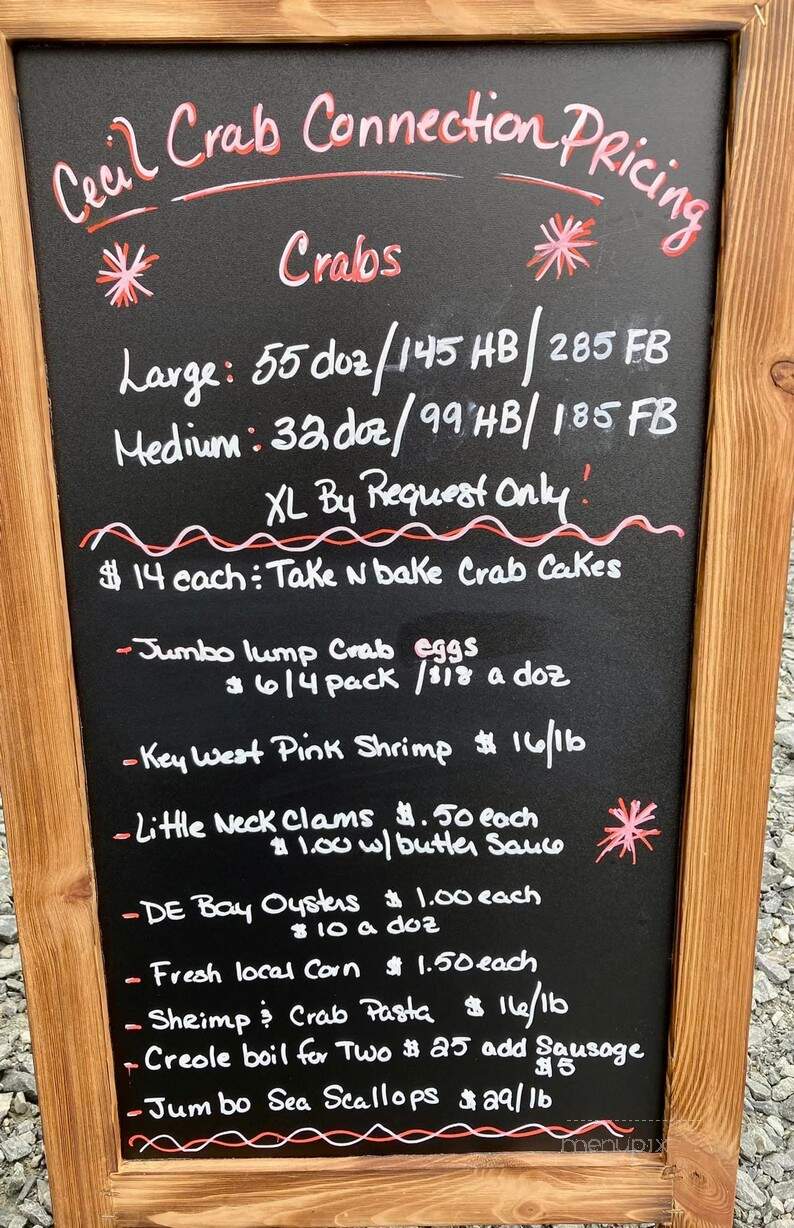 Cecil Crab Connection Pricing
Crabs
Large: 55 doz/145 HB/285 FB
Medium: 32 doz/99 HB/185 FB
XL By Request Only!
$14 each: Take N bake Crab Cakes
- Jumbo lump Crab eggs
$6/4 pack /$18 a doz
- Key West Pink Shrimp $16/lb
- Little Neck Clams $.50 each
$1.00 w/butter Sauce
- DE Bay Oysters $1.00 each
$10 a doz
- Fresh local Corn $1.50 each
- Shrimp & Crab Pasta $16/lb
- Creole boil for Two $25 add Sausage
$5
- Jumbo Sea Scallops $29/lb
menupix